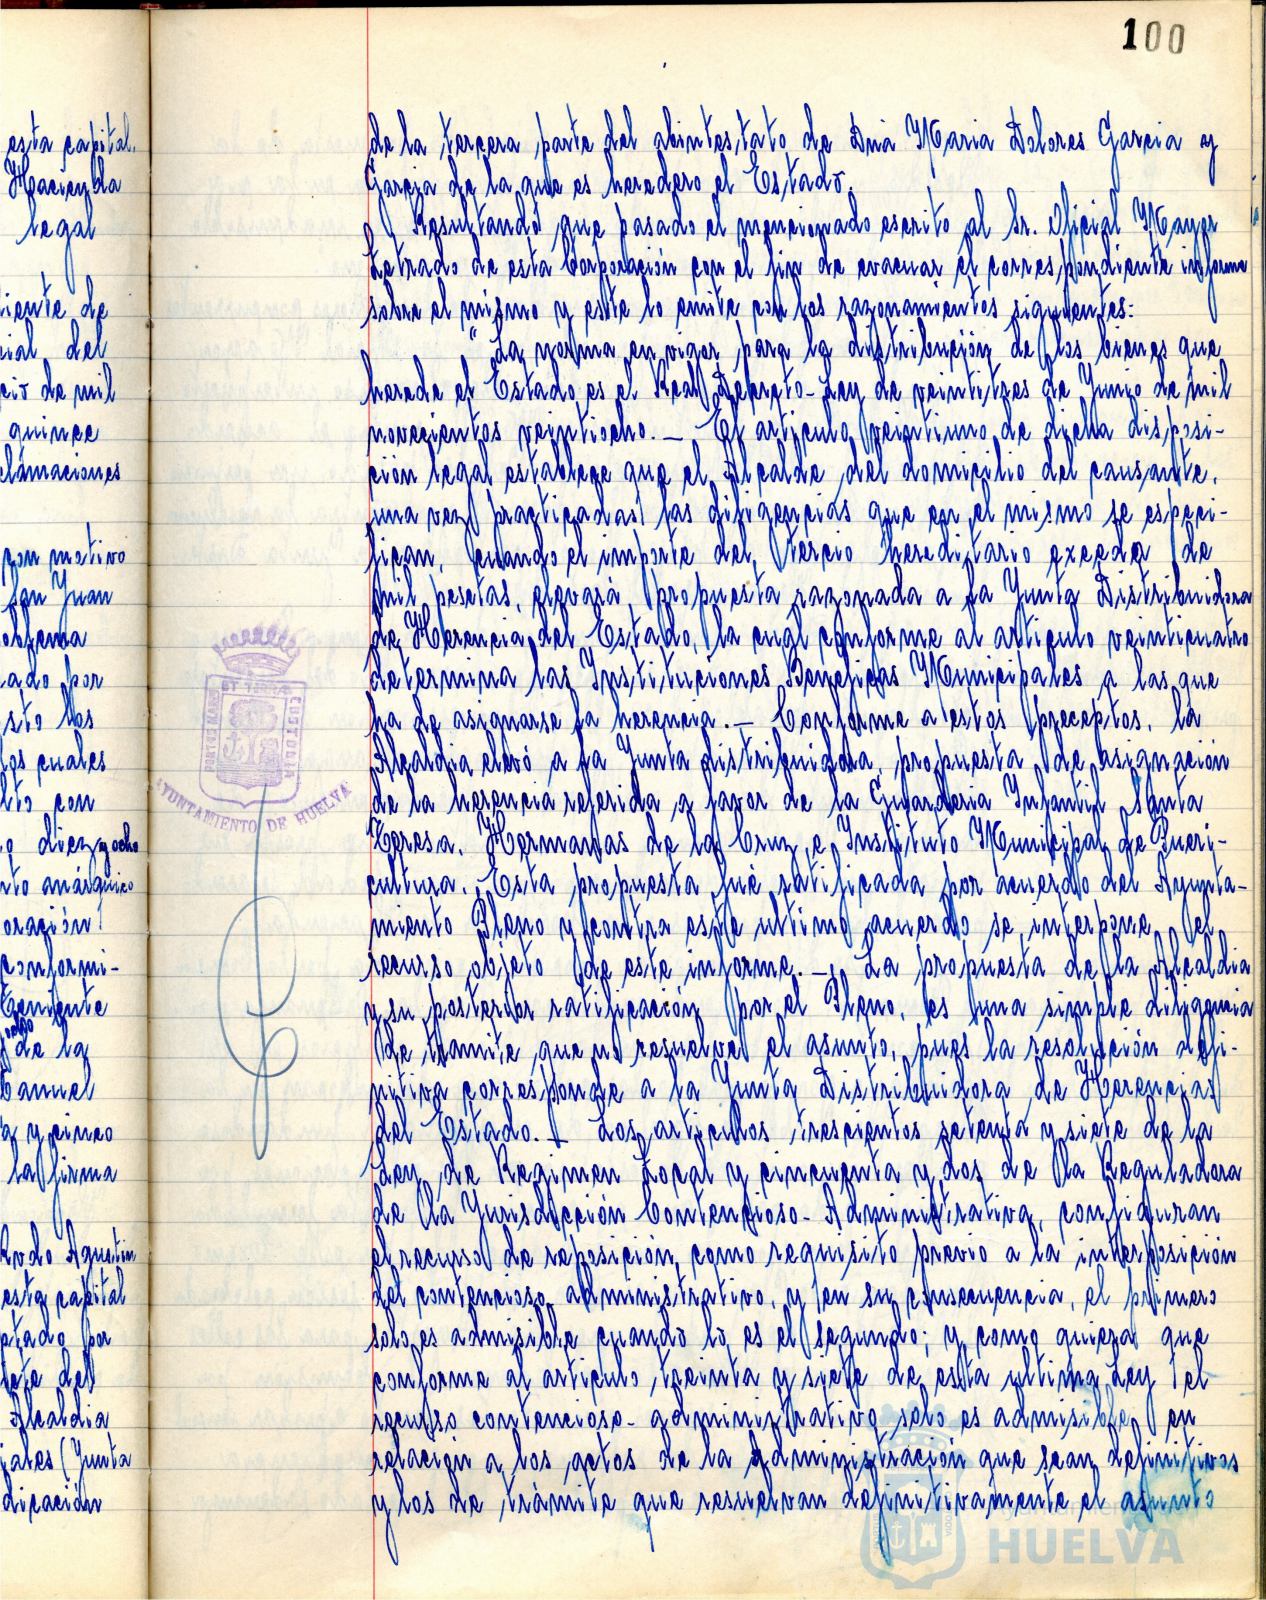 100
esta capital.
Hacienda
legal
iente de
cial del
cio de mil
quince
clamaciones
con motivo
San Juan
oblema
ado por
esto los
los cuales
lto con
o diez y ocho
nto anárquico
oración!
conformi-
Teniente
de la
Manuel
a y cinco
la firma
Rvdo Agustín
esta capital
ptado por
Alcaldia
iales (Junta
dicación
de la tercera parte del abintestato de Dña Maria Dolores Garcia y
Garcia de la que es heredero el Estado.
Resultando que pasado el mencionado escrito al Sr. Oficial Mayor
Letrado de esta Corporación con el fin de evacuar el correspondiente informe
sobre el mismo y este lo emite con los razonamientos siguientes:
"La norma en vigor para la distribución de los bienes que
herede el Estado es el Real Decreto-Ley de veintitres de Junio de mil
novecientos veintiocho. — El articulo veintiuno de dicha disposi-
ción legal establece que el Alcalde del domicilio del causante,
una vez practicadas las diligencias que en el mismo se especi-
fican, cuando el importe del tercio hereditario exceda de
mil pesetas, elevará propuesta razonada a la Junta Distribuidora
de Herencia del Estado, la cual conforme al articulo veinticuatro
determina las Instituciones Beneficas Municipales a las que
ha de asignarse la herencia. — Conforme a estos preceptos, la
Alcaldia elevó a la Junta distribuidora, propuesta de asignación
de la herencia referida a favor de la Guarderia Infantil Santa
Teresa, Hermanas de la Cruz e Instituto Municipal de Pueri-
cultura. Esta propuesta fué ratificada por acuerdo del Ayunta-
miento Pleno y contra este ultimo acuerdo se interpone el
recurso objeto de este informe. — La propuesta de la Alcaldia
y su posterior ratificación por el Pleno, es una simple diligencia
de tramite que no resuelve el asunto, pues la resolución defi-
nitiva corresponde a la Junta Distribuidora de Herencias
del Estado. — Los articulos trescientos setenta y siete de la
Ley de Regimen Local y cincuenta y dos de la Reguladora
de la Jurisdicción Contencioso-Administrativa, configuran
el recurso de reposición como requisito previo a la interposición
del contencioso administrativo, y en su consecuencia, el primero
solo es admisible cuando lo es el segundo; y como quiera que
conforme al articulo treinta y siete de esta ultima Ley el
recurso contencioso-administrativo solo es admisible en
relación a los actos de la Administración que sean definitivos
y los de trámite que resuelvan definitivamente el asunto
PORTUS MARIS ET TERRÆ CUSTODIA
AYUNTAMIENTO DE HUELVA
HUELVA